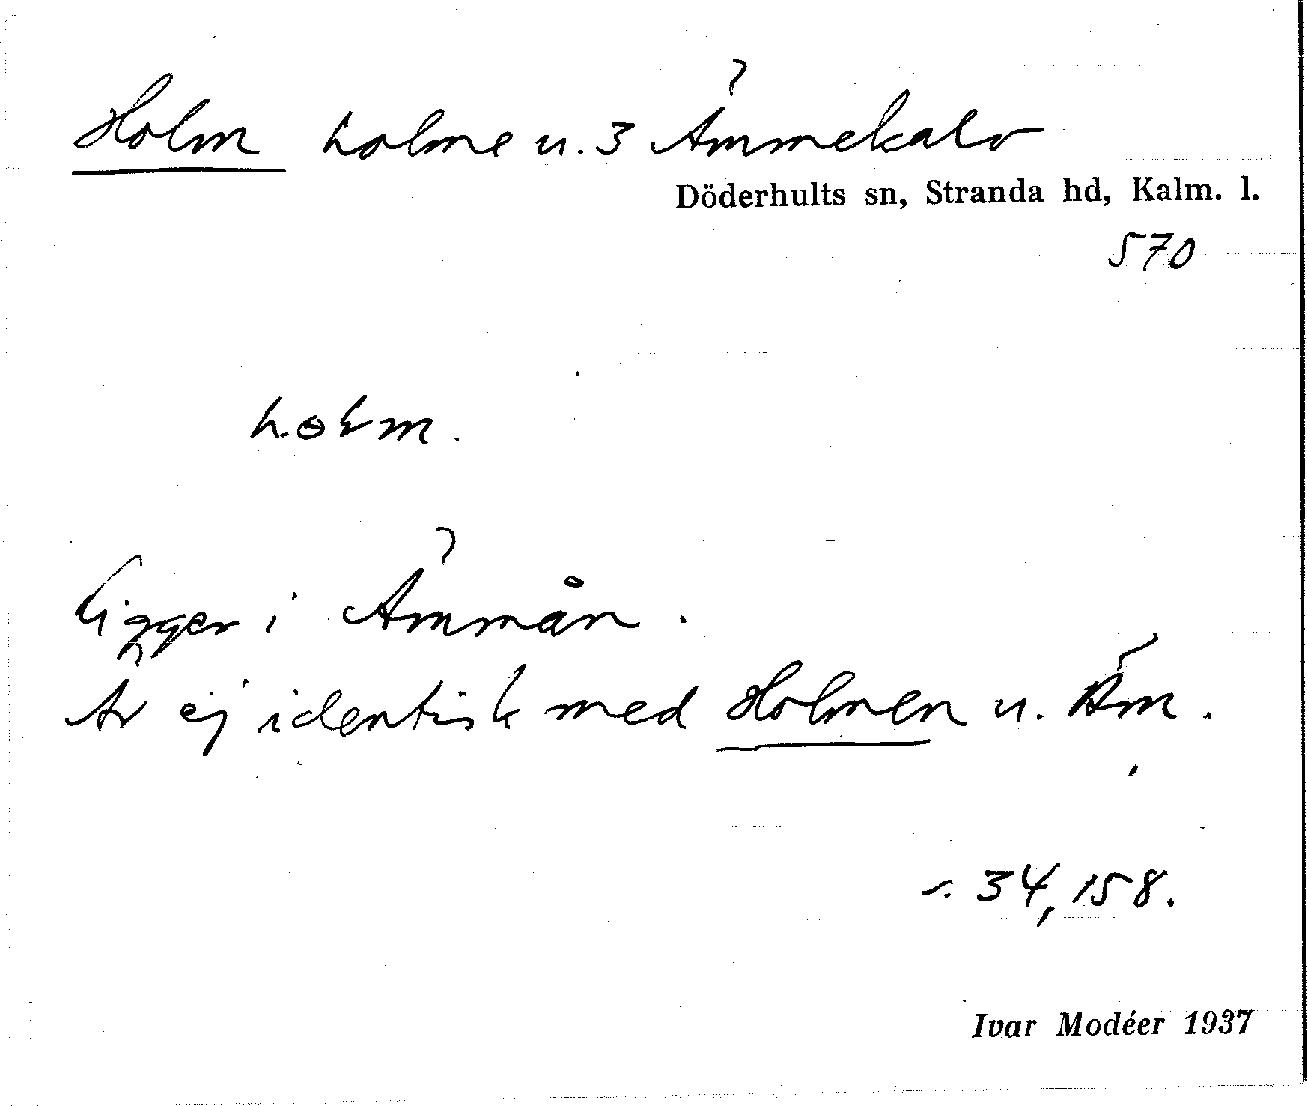 Holm holme u. 3 Ämmekalv
Döderhults sn, Stranda hd, Kalm. l.
570
holm.
Ligger i Ämmån.
Är ej identisk med Holmen u. Äm.
s. 34, 158.
Ivar Modéer 1937